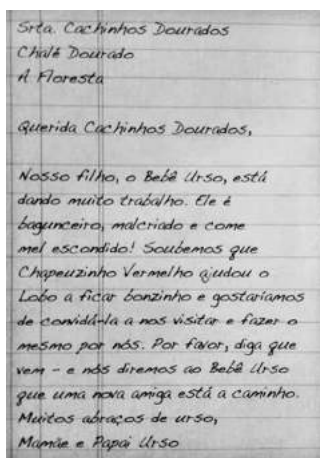 Srta. Cachinhos Dourados
Chalé Dourado
A Floresta
Querida Cachinhos Dourados,
Nosso filho, o Bebê Urso, está
dando muito trabalho. Ele é
bagunceiro, malcriado e come
mel escondido! Soubemos que
Chapeuzinho Vermelho ajudou o
Lobo a ficar bonzinho e gostaríamos
de convidá-la a nos visitar e fazer o
mesmo por nós. Por favor, diga que
vem - e nós diremos ao Bebê Urso
que uma nova amiga está a caminho.
Muitos abraços de urso,
Mamãe e Papai Urso